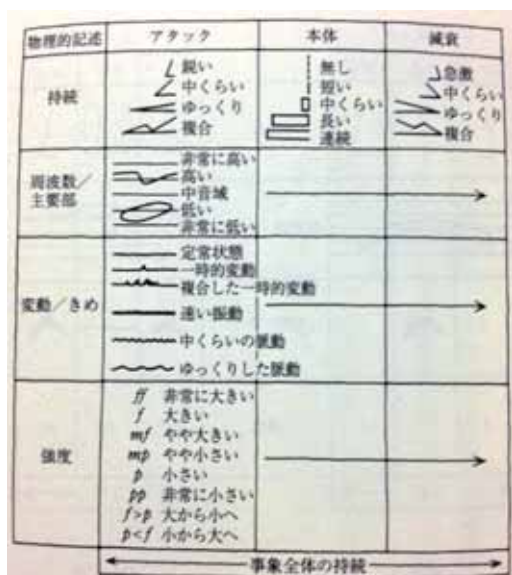 物理的記述 アタック 本体 減衰
持続
鋭い
中くらい
ゆっくり
複合
無し
短い
中くらい
長い
連続
急激
中くらい
ゆっくり
複合
周波数/
主要部
非常に高い
高い
中音域
低い
非常に低い
変動/きめ
定常状態
一時的変動
複合した一時的変動
速い振動
中くらいの脈動
ゆっくりした脈動
強度
ff 非常に大きい
f 大きい
mf やや大きい
mp やや小さい
p 小さい
pp 非常に小さい
f>p 大から小へ
p<f 小から大へ
事象全体の持続